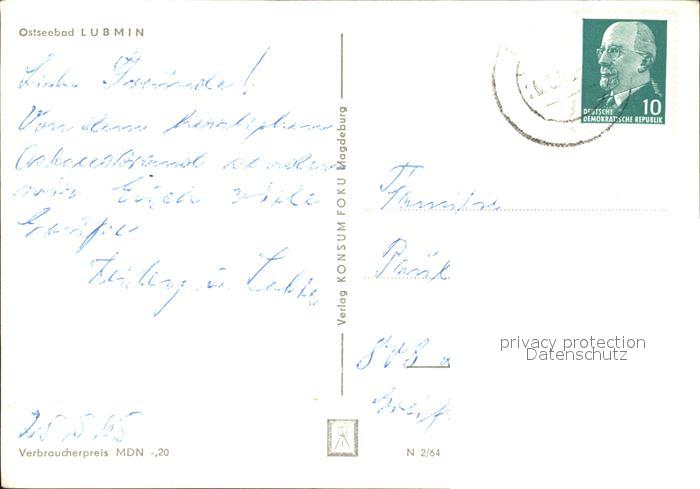 Ostseebad LUBMIN
Liebe Freunde!
Von dem herrlichen
Ostseestrand senden
wir Euch viele
Grüße
25.5.65
Verbraucherpreis MDN -,20
Verlag KONSUM FOKU Magdeburg
N 2/64
10
DEUTSCHE
DEMOKRATISCHE REPUBLIK
Familie
privacy protection
Datenschutz